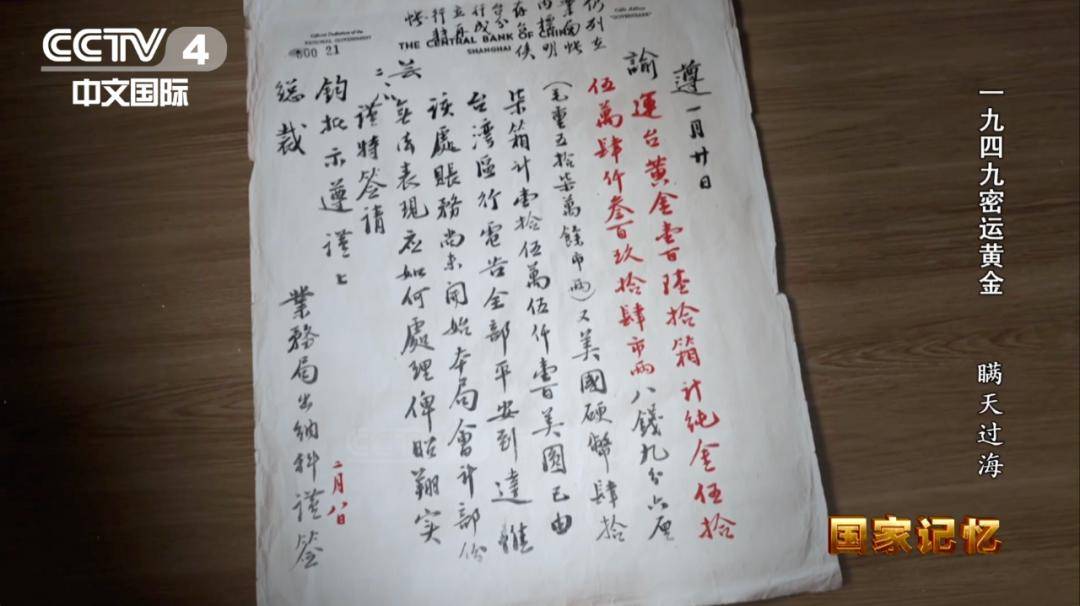 CCTV 4
中文国际
Official Depository of the
NATIONAL GOVERNMENT
THE CENTRAL BANK OF CHINA
SHANGHAI
Cable Address
"GOVERNBANK"
500 21
遵一月廿日
諭運台黄金壹百陸拾箱计纯金伍拾
伍萬肆仟叁百玖拾肆市兩八錢九分六厘
(毛重五拾柒萬餘市兩)又美國硬幣肆拾
柒箱计壹拾伍萬伍仟壹百美圓已由
台湾區行電告全部平安到達惟
该處賬務尚未開始本局會计部份
無法表現应如何處理俾昭翔实
谨特签請
鈞批示遵谨上
总裁
業務局出纳科谨签
二月八日
一九四九密运黄金 瞒天过海
国家记忆